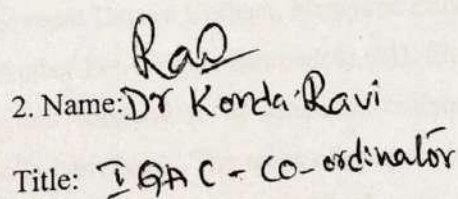 Rao
2. Name: Dr Konda Ravi
Title: IQAC - CO-ordinator